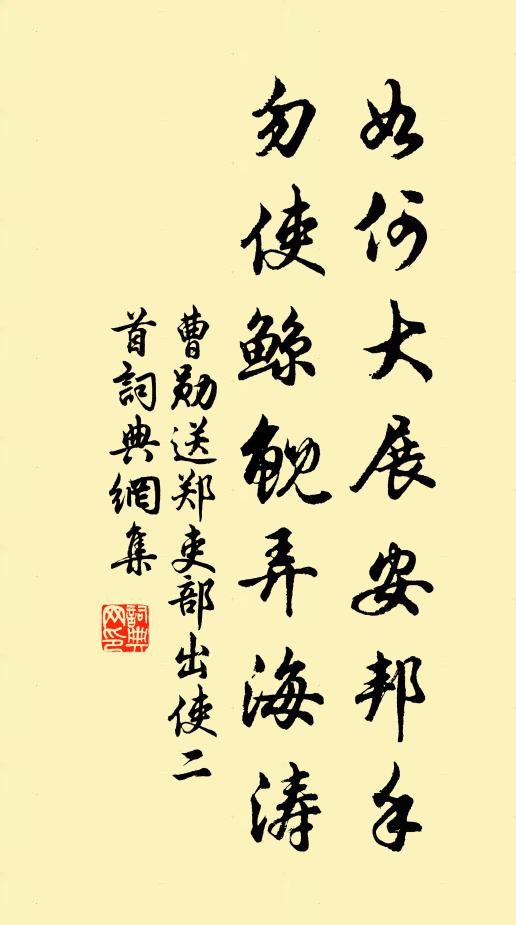 如何大展安邦手
勿使鲸鲵弄海涛
曹勋送郑吏部出使二
首詞典網集
詞典
网印